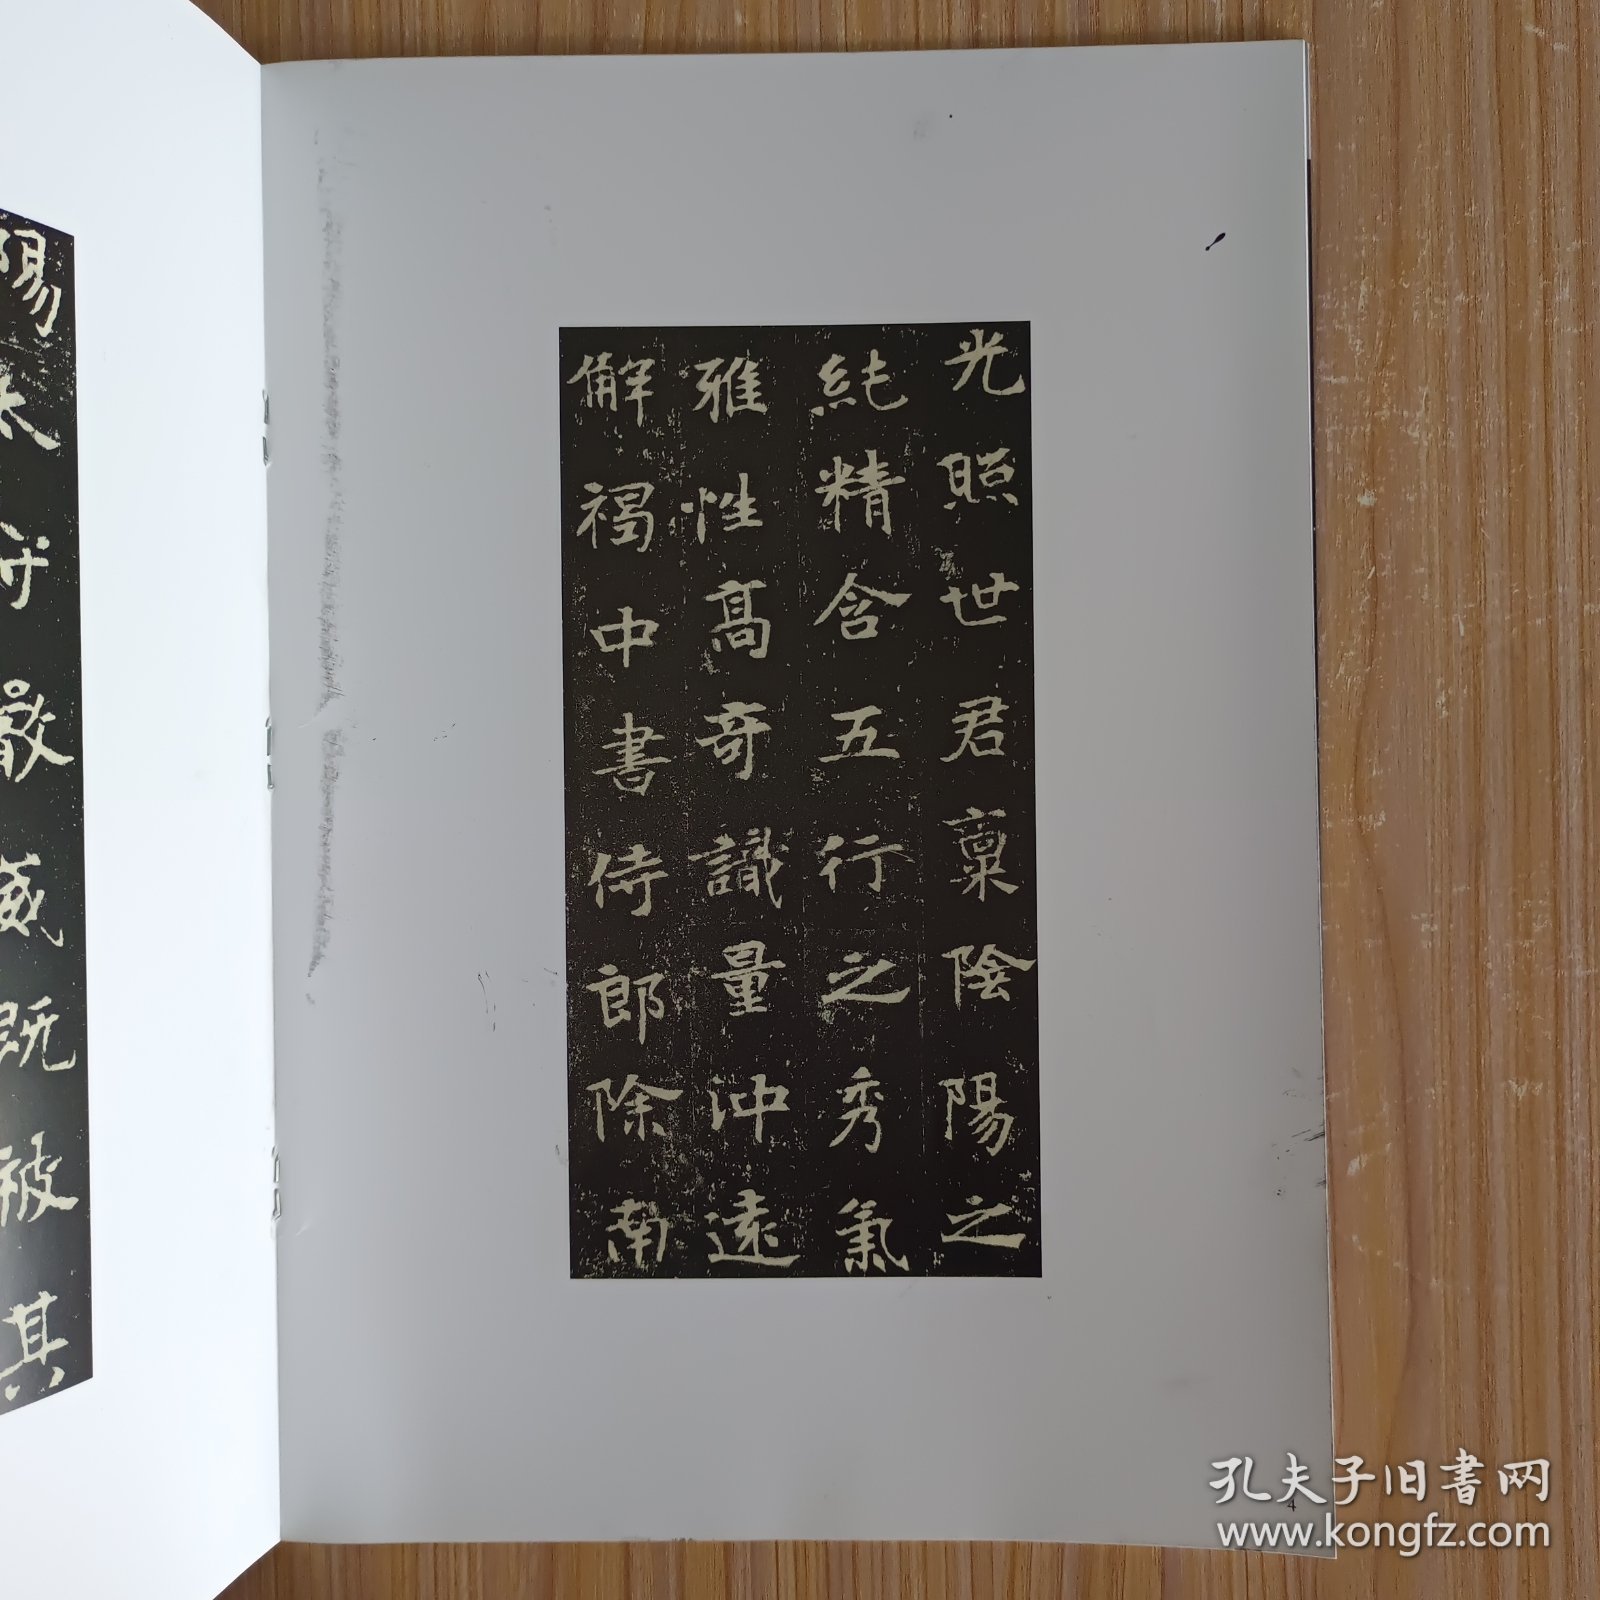 光照世君稟陰陽之
純精含五行之秀氣
雅性高奇識量沖遠
解褐中書侍郎除南
陽太守嚴威既被其
4
孔夫子旧书网
www.kongfz.com